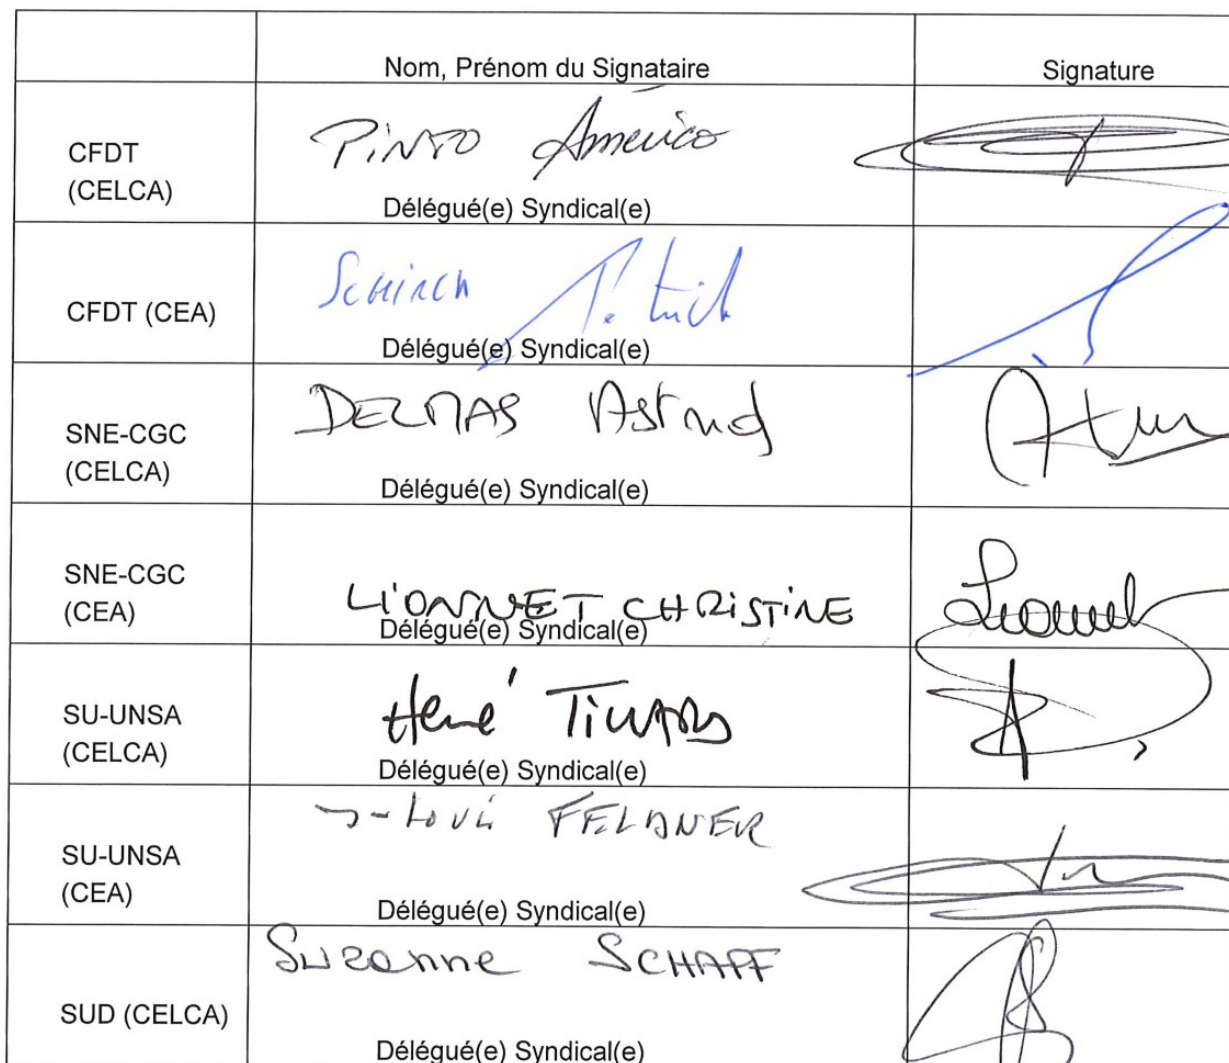 Nom, Prénom du Signataire Signature
CFDT
(CELCA)
PINTO Americo
Délégué(e) Syndical(e)
CFDT (CEA)
Délégué(e) Syndical(e)
SNE-CGC
(CELCA)
DELMAS Astrid
Délégué(e) Syndical(e)
SNE-CGC
(CEA)
LIONNET CHRISTINE
Délégué(e) Syndical(e)
SU-UNSA
(CELCA)
Hervé
Délégué(e) Syndical(e)
SU-UNSA
(CEA)
J-Louis FELDNER
Délégué(e) Syndical(e)
SUD (CELCA)
Suzanne SCHAFF
Délégué(e) Syndical(e)